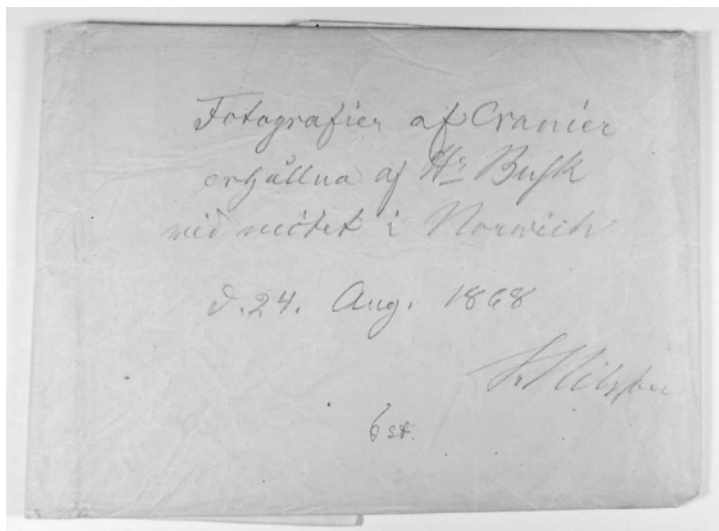 Fotografier af Cranier
erhållna af Hr Busk
vid mötet i Norwich
d. 24. Aug. 1868
S. Nilsson
6 st.